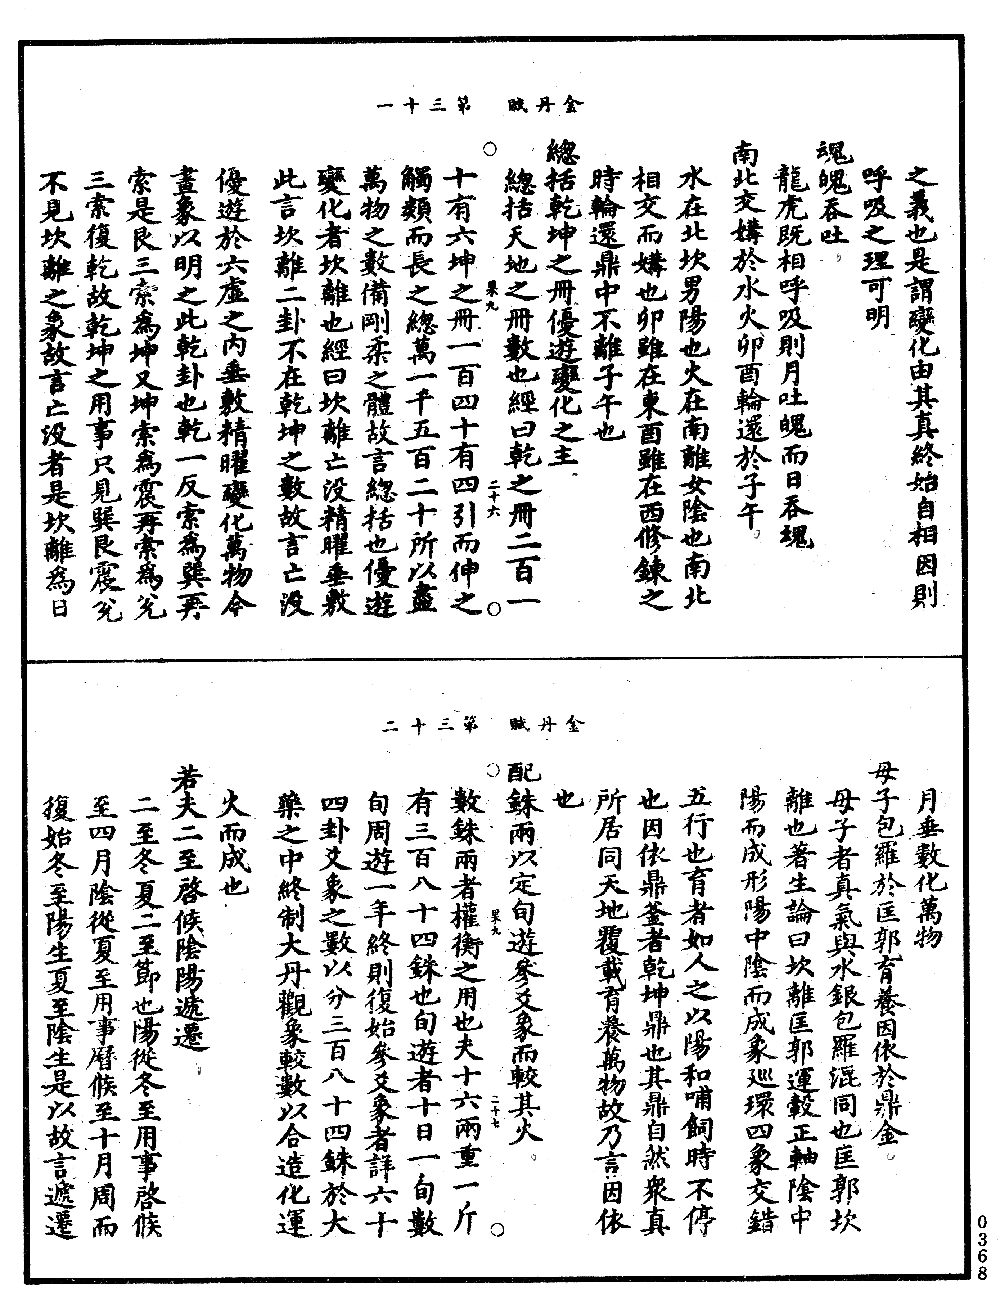 金丹賦　第三十一
之義也是謂變化由其真終始自相因則
呼吸之理可明
魂魄吞吐。
龍虎既相呼吸則月吐魄而日吞魂
南北交媾於水火卯酉輪還於子午。
水在北坎男陽也火在南離女陰也南北
相交而媾也卯雖在東酉雖在西修鍊之
時輪還鼎中不離子午也
總括乾坤之冊優遊變化之主
總括天地之冊數也經曰乾之冊二百一
○　杲九　二十六　○
十有六坤之冊一百四十有四引而伸之
觸類而長之總萬一千五百二十所以盡
萬物之數備剛柔之體故言總括也優遊
變化者坎離也經曰坎離亡没精曜垂敷
此言坎離二卦不在乾坤之數故言亡没
優遊於六虛之内垂敷精曜變化萬物今
畫象以明之此乾卦也乾一反索為巽再
索是艮三索為坤又坤索為震再索為兌
三索復乾故乾坤之用事只見巽艮震兌
不見坎離之象故言亡没者是坎離為日
金丹賦　第三十二
月垂數化萬物
母子包羅於匡郭育養因依於鼎金。
母子者真氣與水銀包羅混同也匡郭坎
離也著生論曰坎離匡郭運轂正軸陰中
陽而成形陽中陰而成象巡環四象交錯
五行也育者如人之以陽和哺飼時不停
也因依鼎釜者乾坤鼎也其鼎自然衆真
所居同天地覆載育養萬物故乃言因依
也
配銖兩以定旬遊參爻象而較其火。
○　杲九　二十七　○
數銖兩者權衡之用也夫十六兩重一斤
有三百八十四銖也旬遊者十日一旬數
旬周遊一年終則復始參爻象者詳六十
四卦爻象之數以分三百八十四銖於大
藥之中終制大丹觀象較數以合造化運
火而成也
若夫二至啓候陰陽遞遷。
二至冬夏二至節也陽從冬至用事啓候
至四月陰從夏至用事曆候至十月周而
復始冬至陽生夏至陰生是以故言遞遷
0368